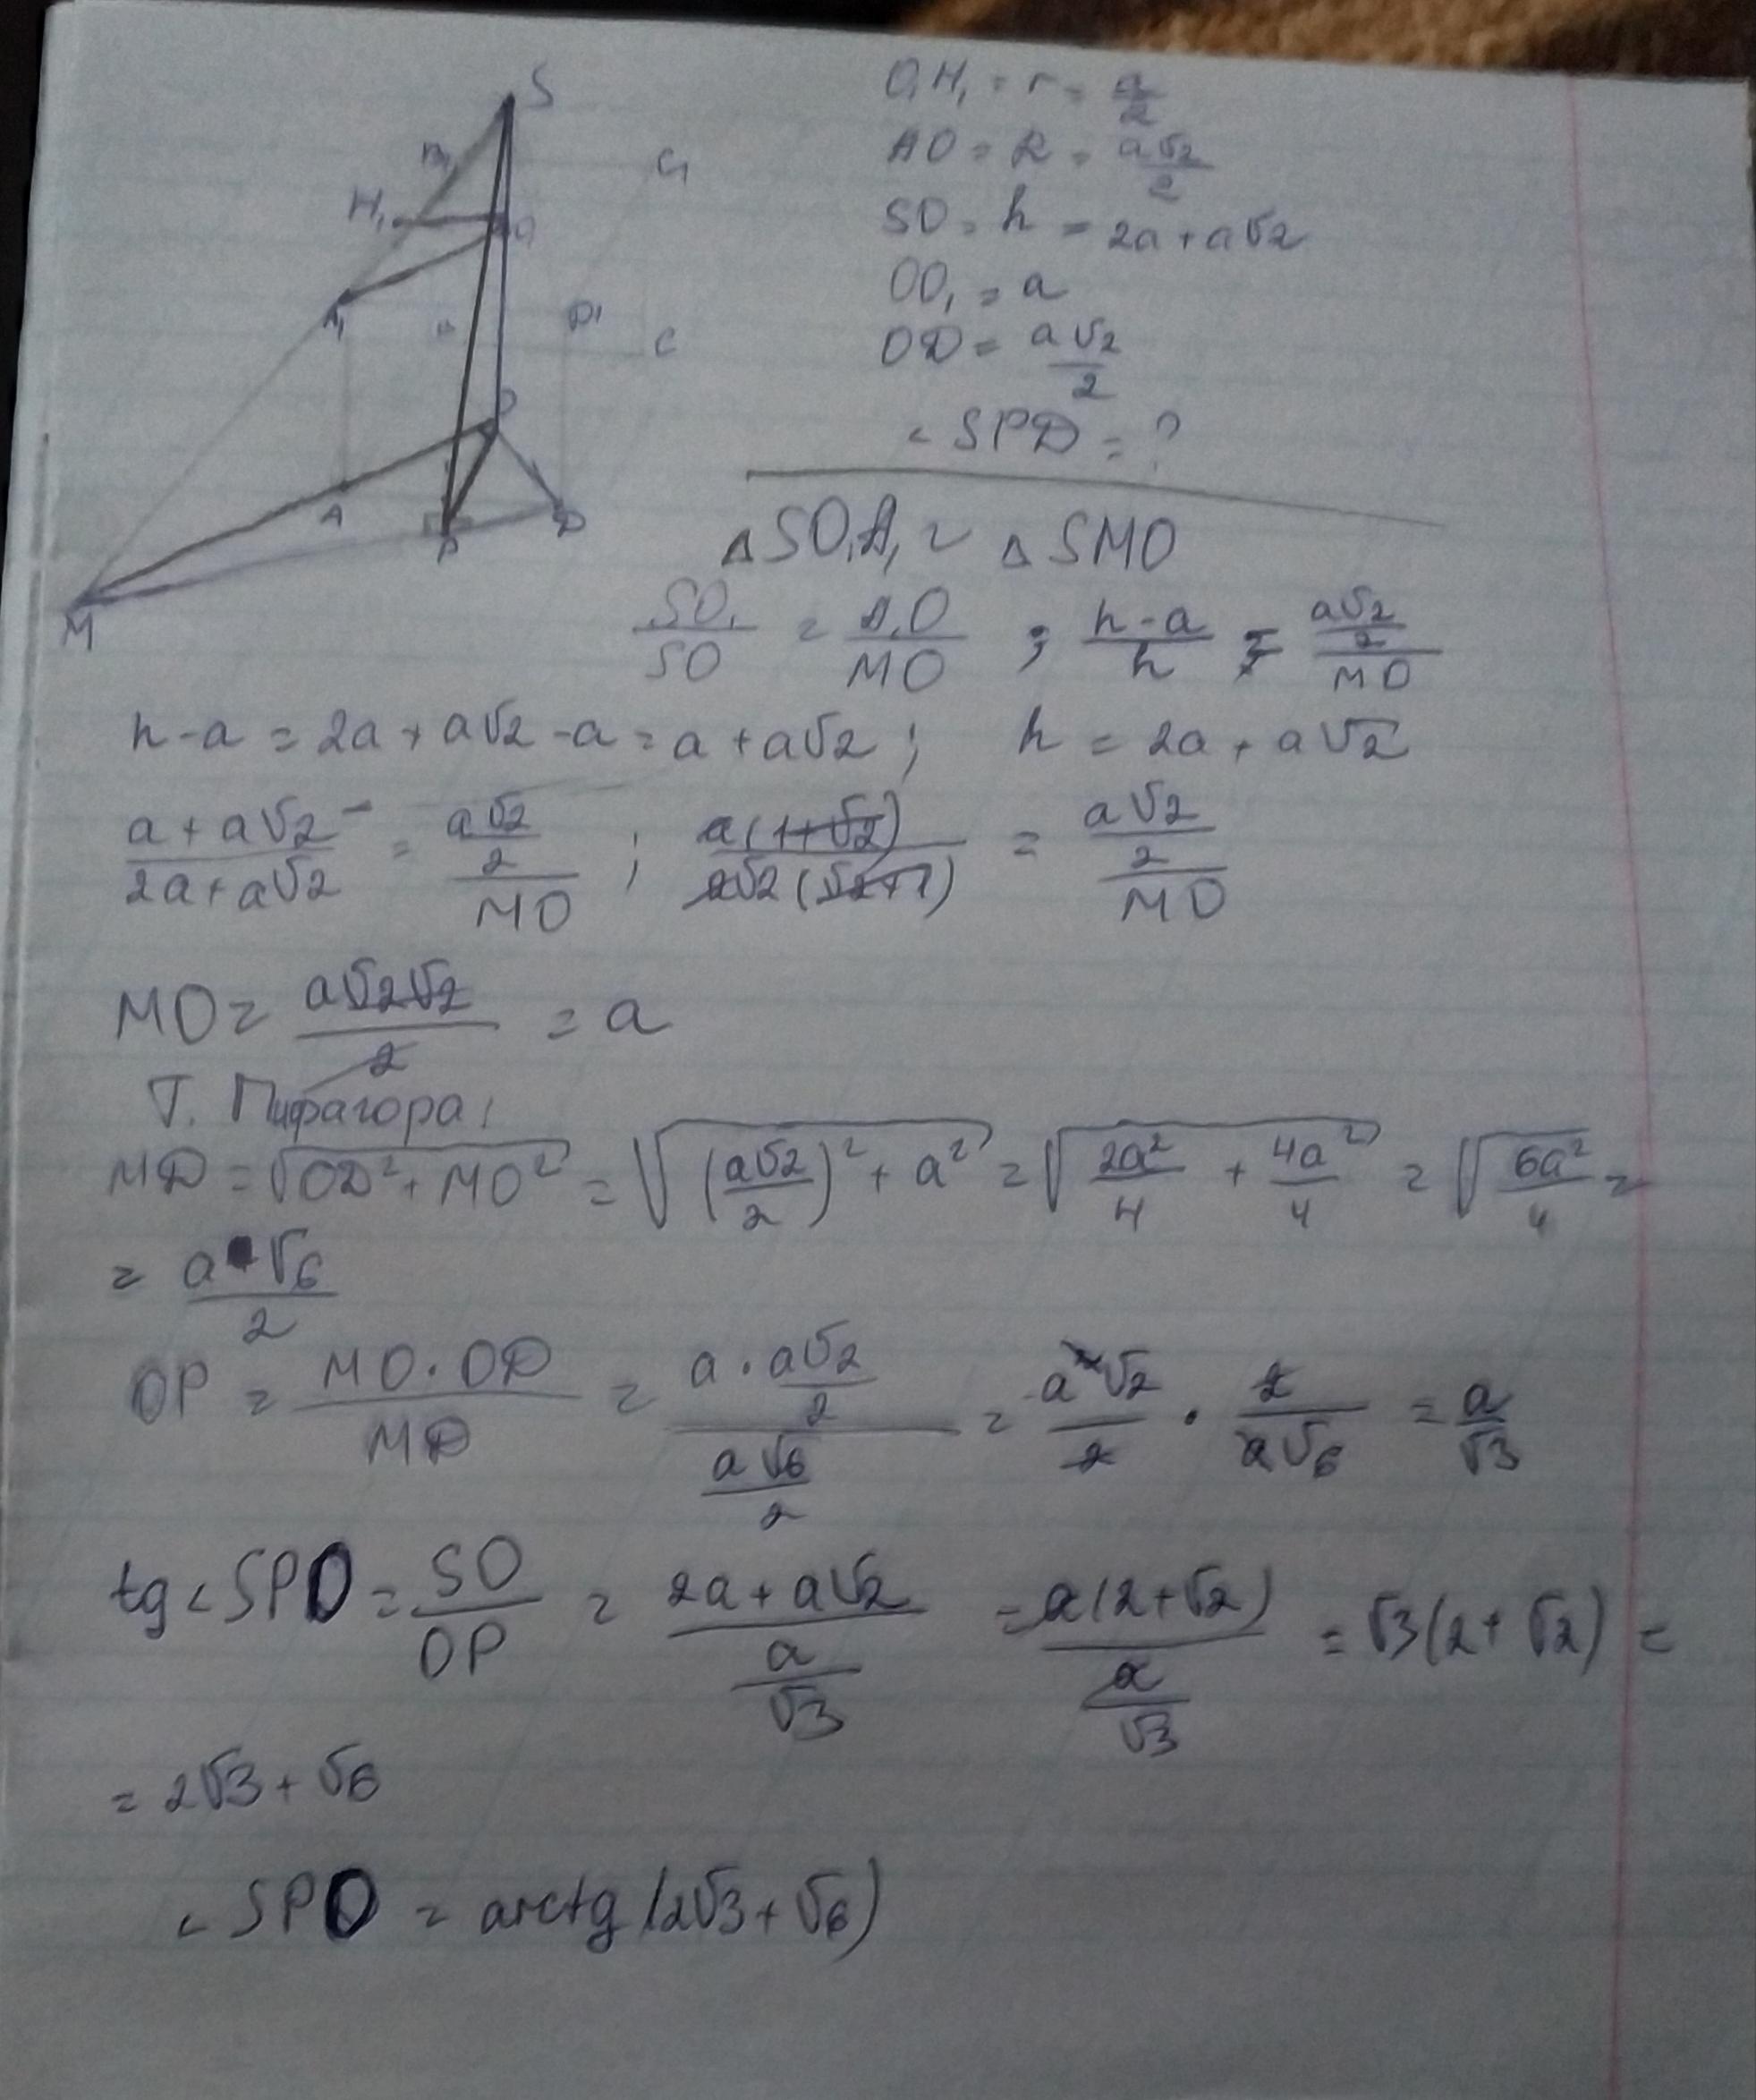 S
B₁
C₁
H₁
O₁
A₁
D₁
B
C
O
A
P
D
M
O₁H₁ = r = a/2
AO = R = a√2/2
SO = h = 2a + a√2
OO₁ = a
OD = a√2/2
∠SPD = ?
△SO₁A₁ ~ △SMO
SO₁/SO = A₁O/MO ; (h-a)/h = (a√2/2)/MO
h-a = 2a + a√2 - a = a + a√2 ; h = 2a + a√2
(a + a√2)/(2a + a√2) = (a√2/2)/MO ; a(1+√2)/(a√2(√2+1)) = (a√2/2)/MO
MO = a√2√2/2 = a
Т. Пифагора:
MD = √(OD² + MO²) = √((a√2/2)² + a²) = √(2a²/4 + 4a²/4) = √(6a²/4) =
= a√6/2
OP = MO · OD/MD = (a · a√2/2)/(a√6/2) = a²√2/2 · 2/(a√6) = a/√3
tg∠SPO = SO/OP = (2a + a√2)/(a/√3) = a(2+√2)/(a/√3) = √3(2 + √2) =
= 2√3 + √6
∠SPO = arctg(2√3 + √6)